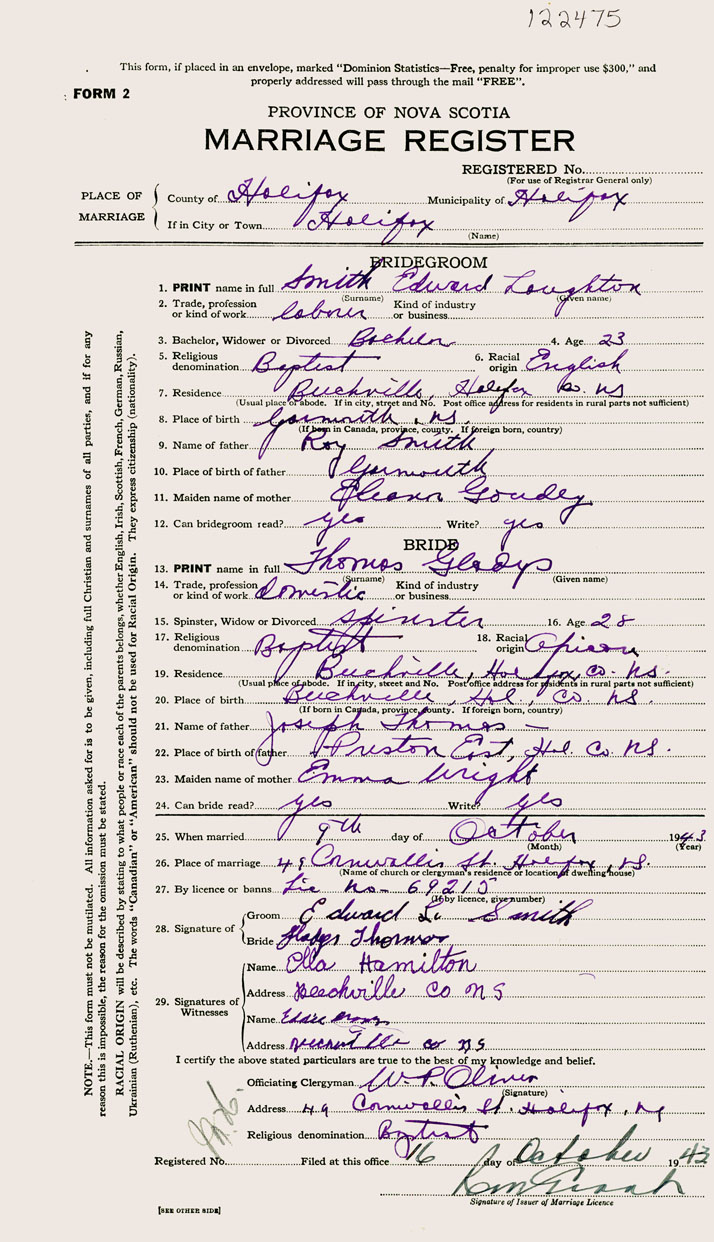 122475
This form, if placed in an envelope, marked "Dominion Statistics—Free, penalty for improper use $300," and
properly addressed will pass through the mail "FREE".
FORM 2
PROVINCE OF NOVA SCOTIA
MARRIAGE REGISTER
REGISTERED No.
(For use of Registrar General only)
PLACE OF MARRIAGE
County of Halifax Municipality of Halifax
If in City or Town Halifax
(Name)
BRIDEGROOM
1. PRINT name in full Smith Edward Loughton
(Surname) (Given name)
2. Trade, profession or kind of work labourer Kind of industry or business
3. Bachelor, Widower or Divorced Bachelor 4. Age 23
5. Religious denomination Baptist 6. Racial origin English
7. Residence Buchville, Halifax Co. NS
(Usual place of abode. If in city, street and No. Post office address for residents in rural parts not sufficient)
8. Place of birth Yarmouth, NS.
(If born in Canada, province, county. If foreign born, country)
9. Name of father Roy Smith
10. Place of birth of father Yarmouth
11. Maiden name of mother Eleanor Goudey
12. Can bridegroom read? yes Write? yes
BRIDE
13. PRINT name in full Thomas Gladys
(Surname) (Given name)
14. Trade, profession or kind of work domestic Kind of industry or business
15. Spinster, Widow or Divorced spinster 16. Age 28
17. Religious denomination Baptist 18. Racial origin African
19. Residence Buchville, Halifax Co. NS.
(Usual place of abode. If in city, street and No. Post office address for residents in rural parts not sufficient)
20. Place of birth Buchville, Hal, Co. NS.
(If born in Canada, province, county. If foreign born, country)
21. Name of father Joseph Thomas —
22. Place of birth of father Preston East, Hal. Co. NS.
23. Maiden name of mother Emma Wright
24. Can bride read? yes Write? yes
25. When married 9th day of October 1943
(Month) (Year)
26. Place of marriage 49 Cornwallis St. Halifax, NS.
(Name of church or clergyman's residence or location of dwelling house)
27. By licence or banns Lic No- 69215
(If by licence, give number)
28. Signature of
Groom Edward L. Smith
Bride Gladys Thomas
29. Signatures of Witnesses
Name Ella Hamilton
Address Beechville Co NS
Name Eddie
Address Co NS
I certify the above stated particulars are true to the best of my knowledge and belief.
Officiating Clergyman W. P. Oliver
(Signature)
Address 49 Cornwallis St. Halifax, NS
Religious denomination Baptist
Registered No. Filed at this office 16 day of October 1943
Signature of Issuer of Marriage Licence
[SEE OTHER SIDE]
NOTE.—This form must not be mutilated. All information asked for is to be given, including full Christian and surnames of all parties, and if for any
reason this is impossible, the reason for the omission must be stated.
RACIAL ORIGIN will be described by stating to what people or race each of the parents belongs, whether English, Irish, Scottish, French, German, Russian,
Ukrainian (Ruthenian), etc. The words "Canadian" or "American" should not be used for Racial Origin. They express citizenship (nationality).